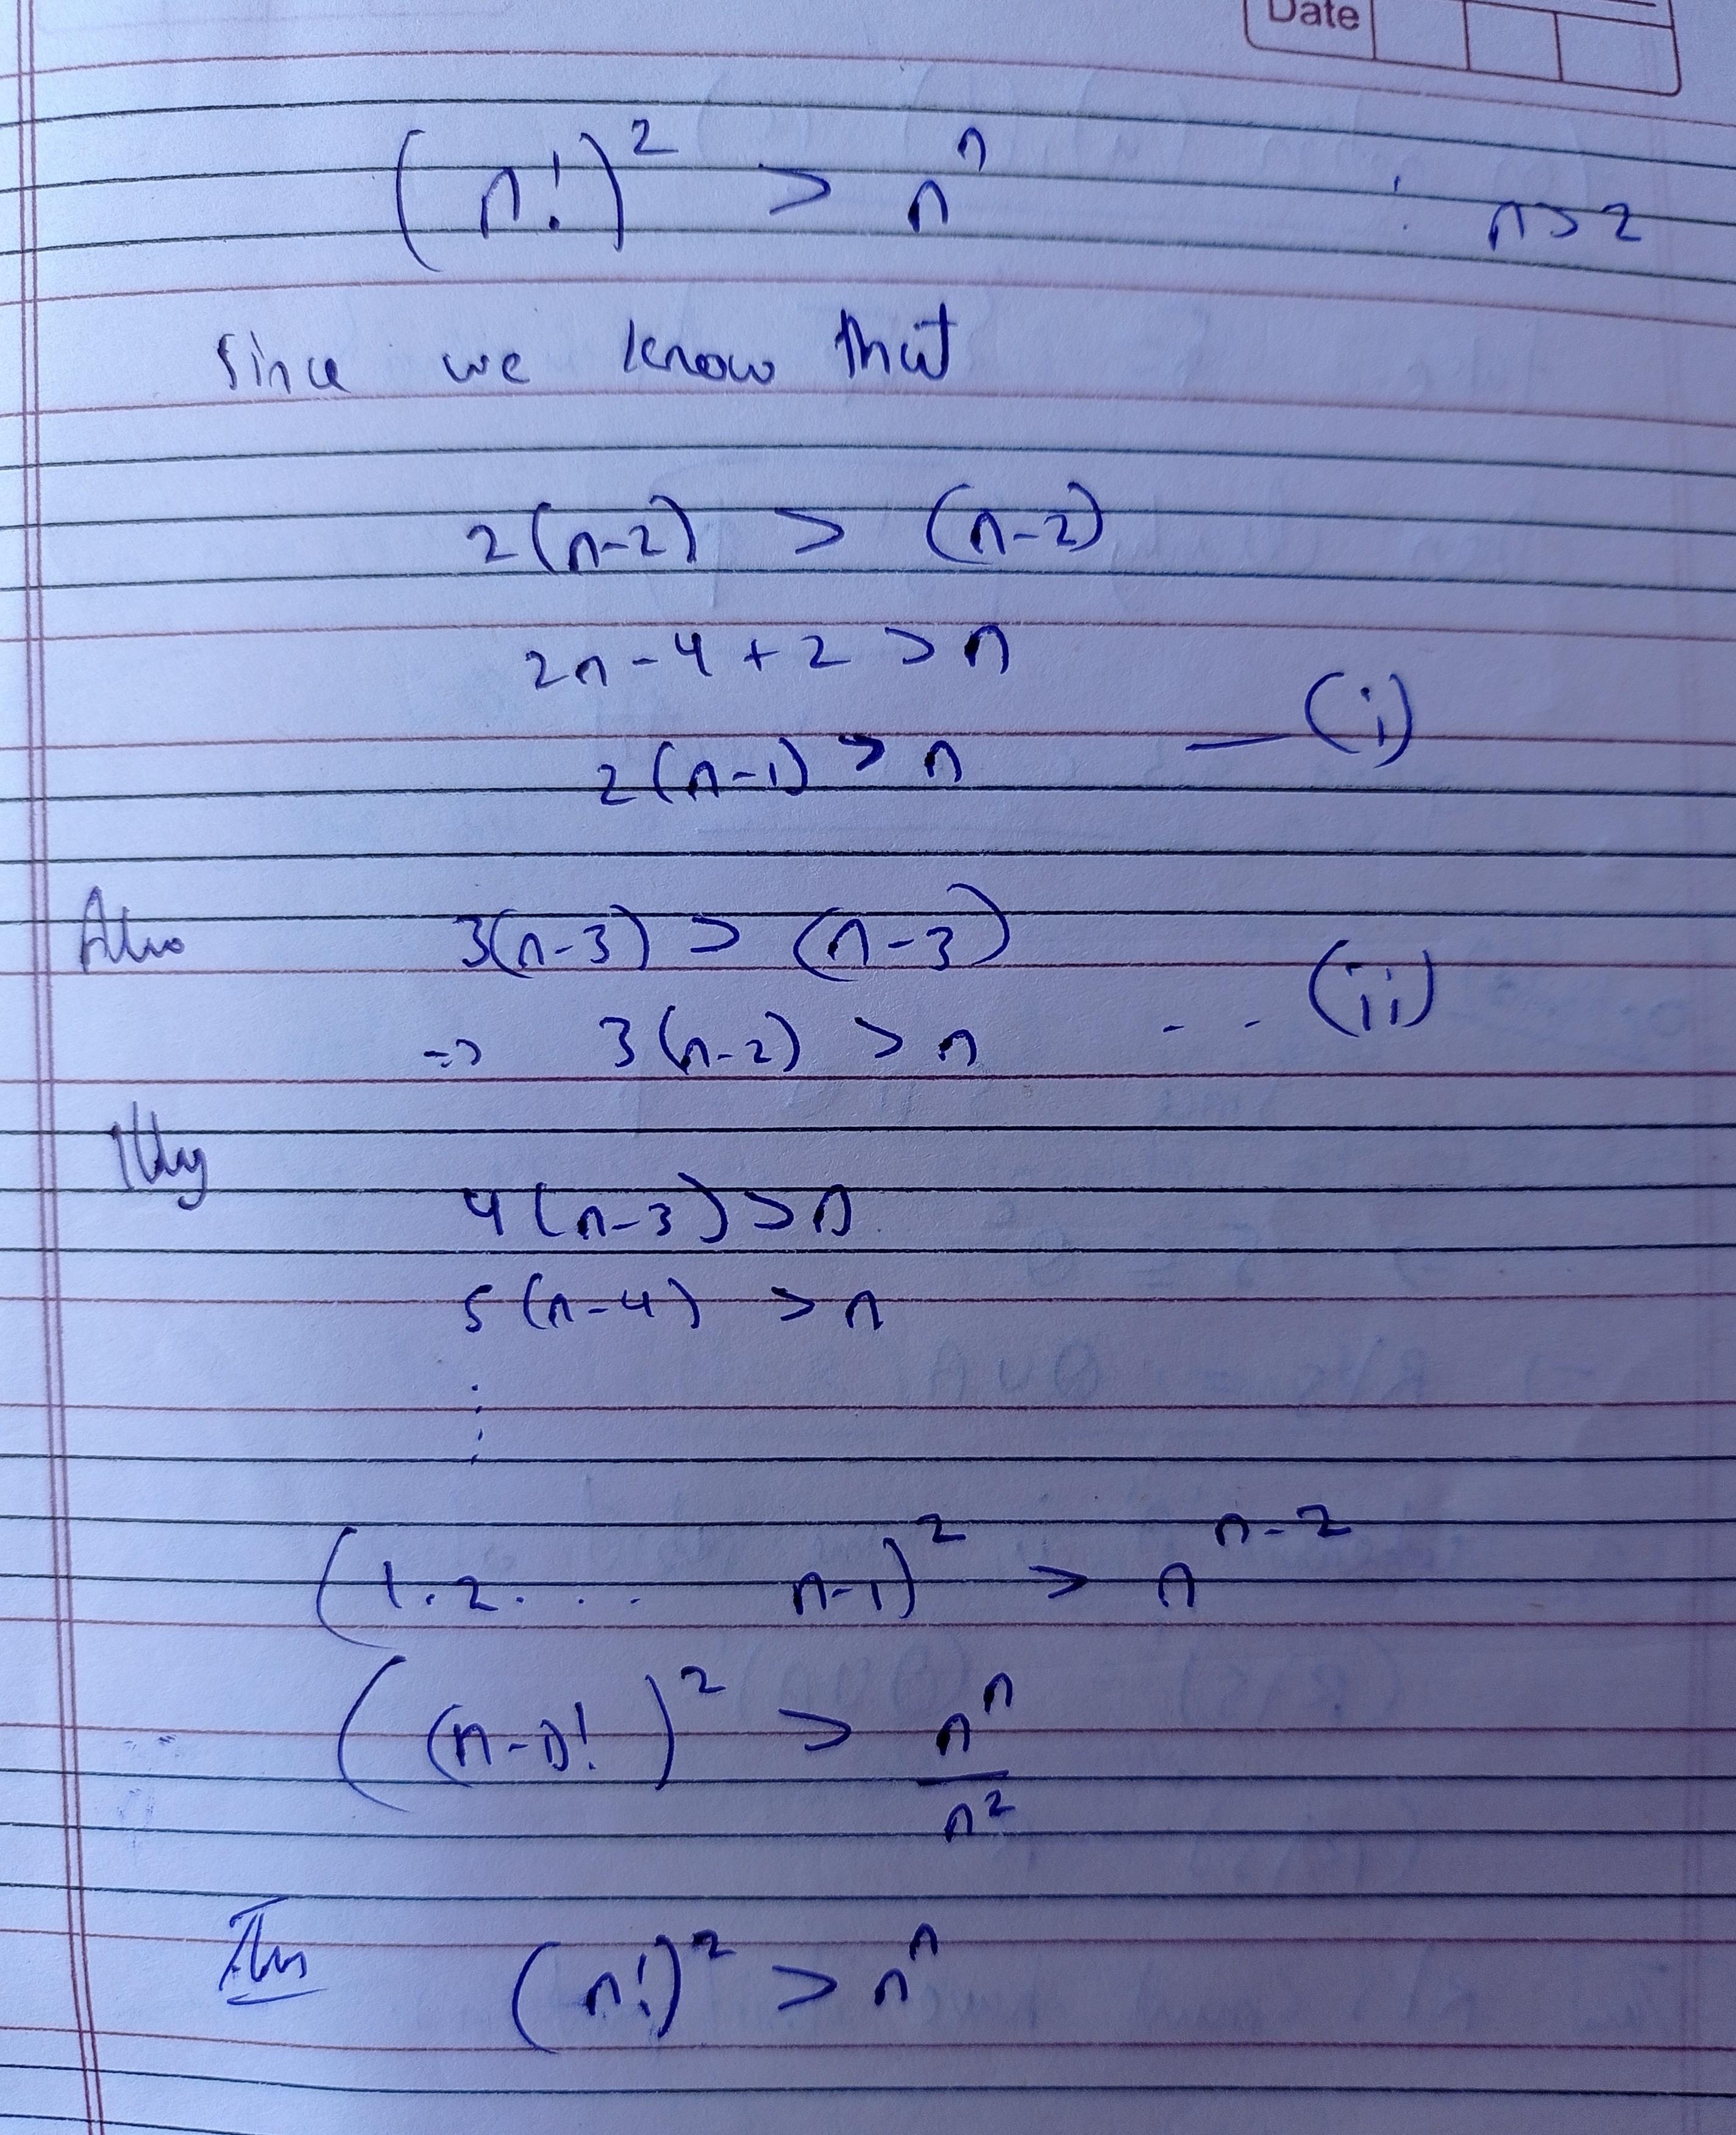 Date
(n!)² > nⁿ ; n>2
Since we know that
2(n-2) > (n-2)
2n-4+2 > n
2(n-1) > n —(i)
Also 3(n-3) > (n-3)
=> 3(n-2) > n -- (ii)
Illly
4(n-3)>n.
5(n-4) > n
⋮
(1.2.... n-1)² > nⁿ⁻²
((n-1)!)² > nⁿ/n²
Thus (n!)² > nⁿ